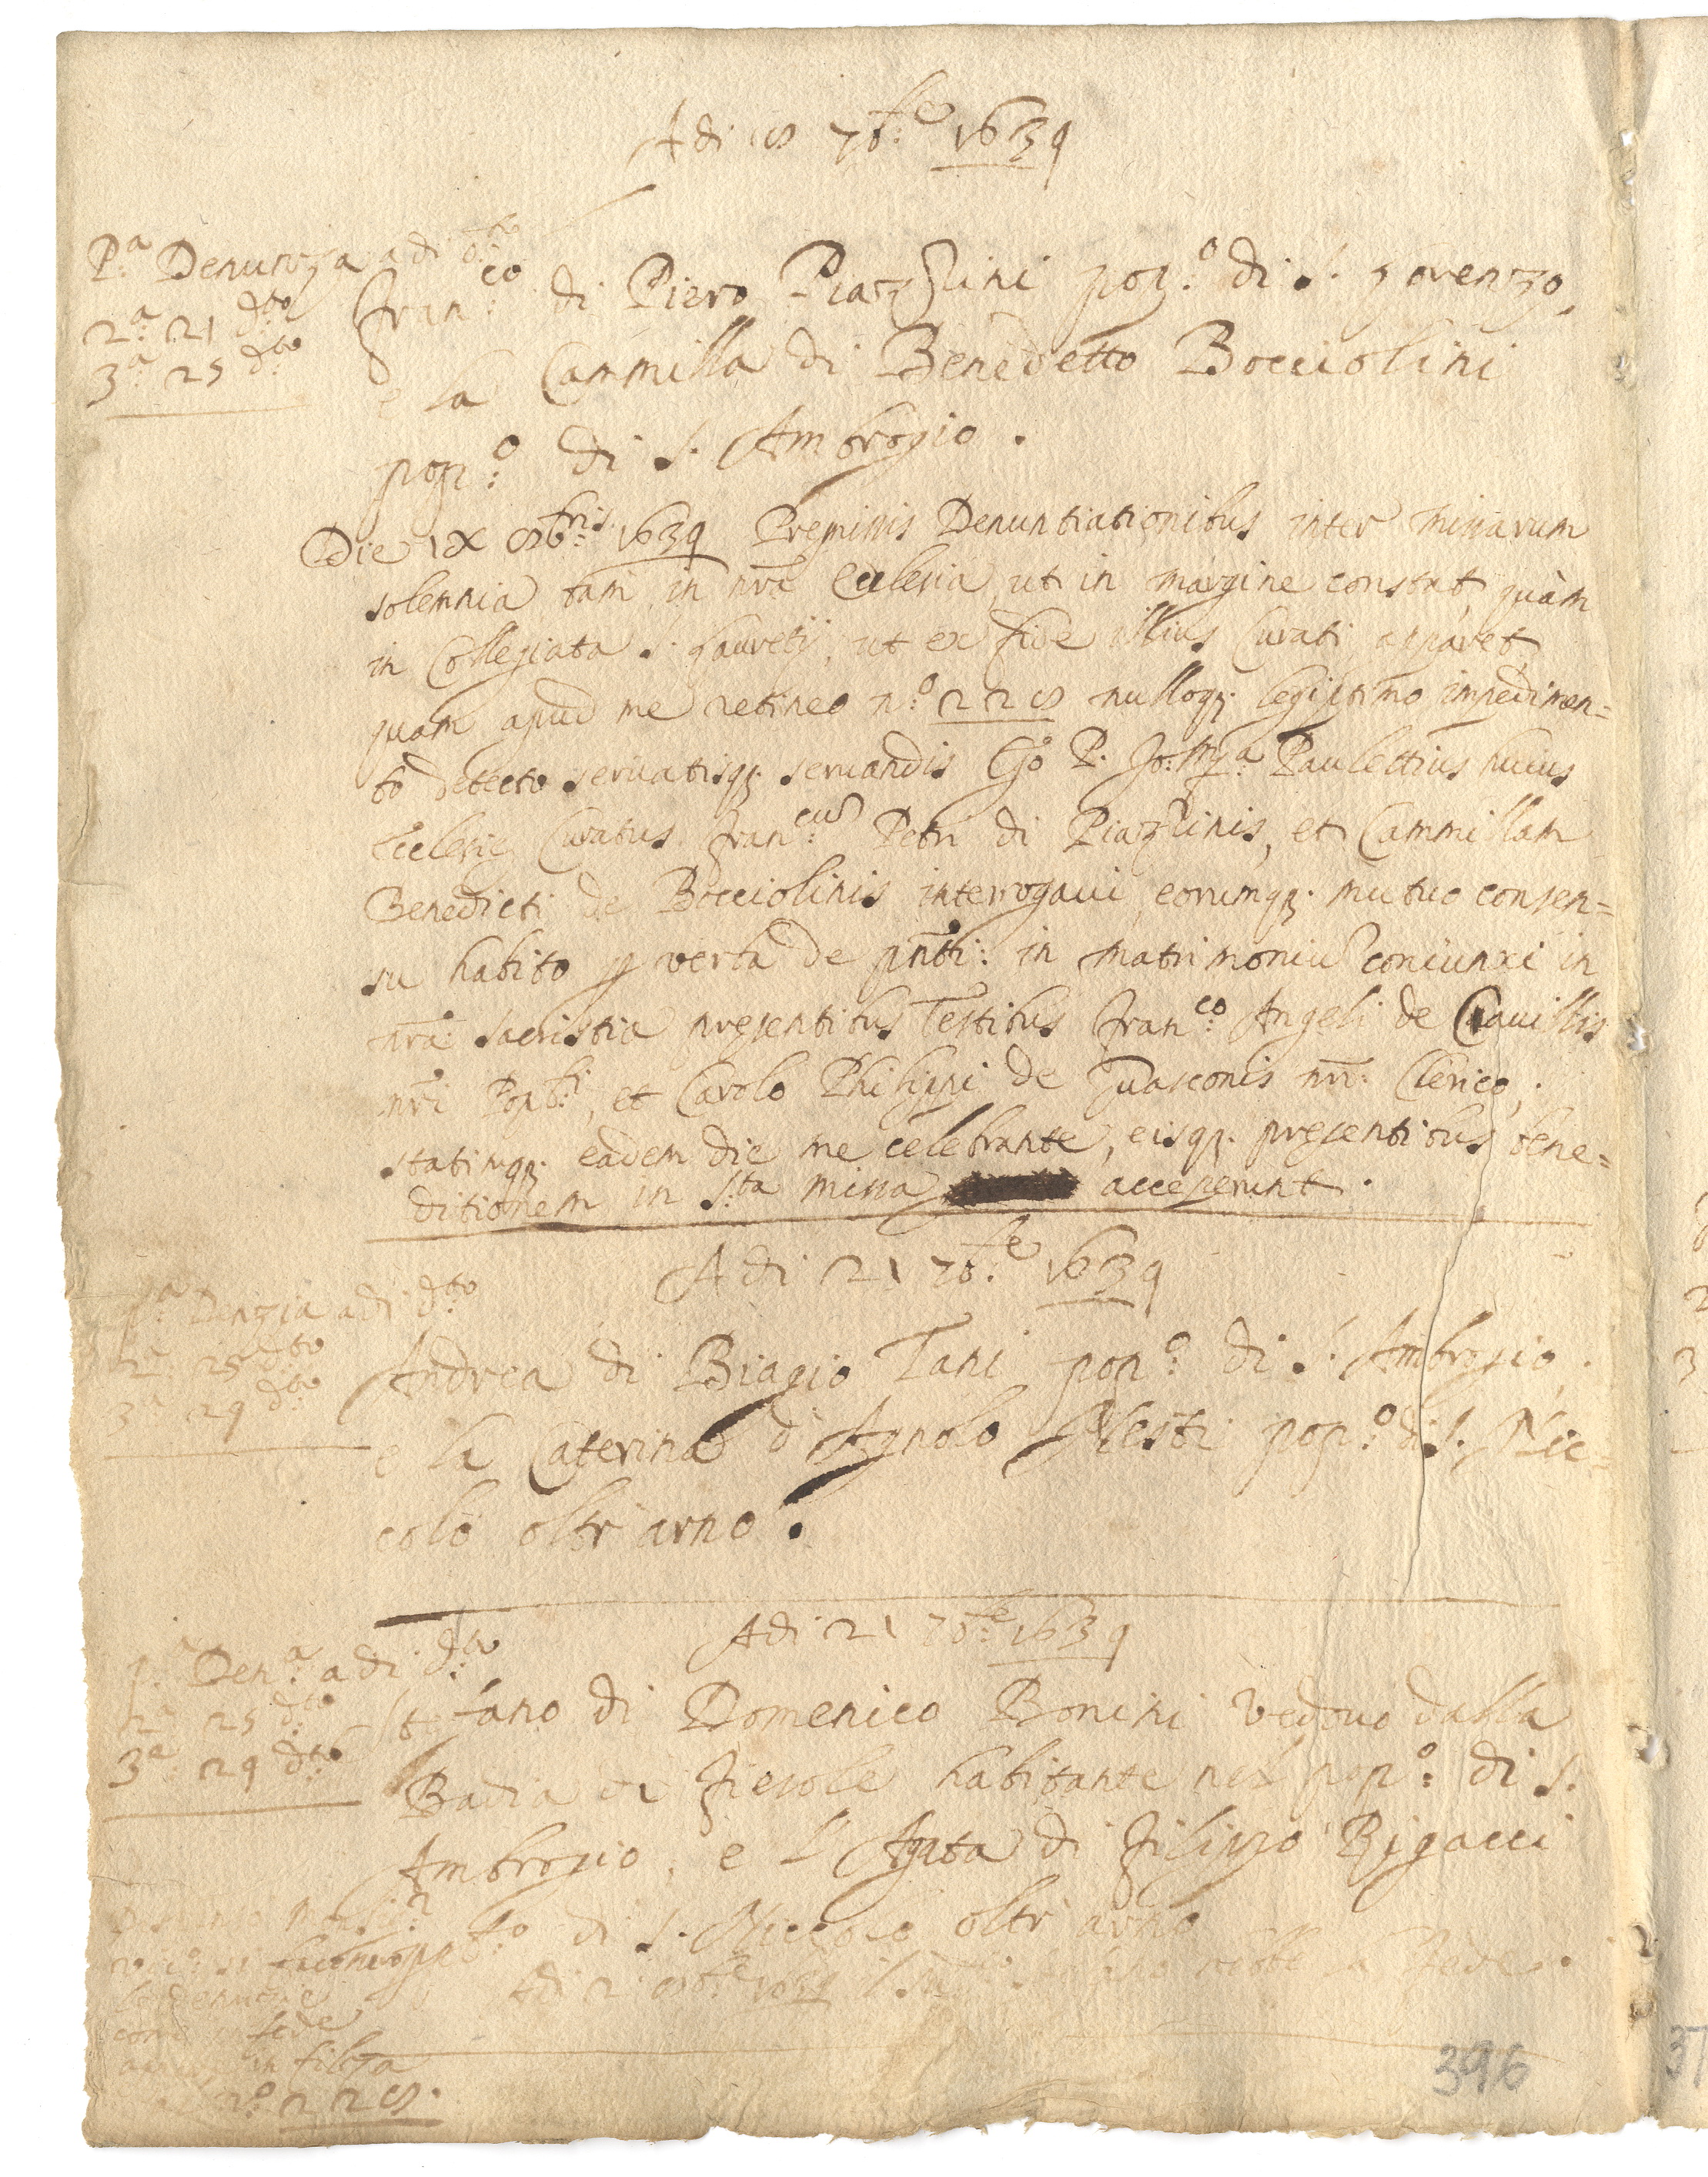 Adi 18 7b:re 1639
P:a Denunzia adi d:to
2:a 21 d:to
3:a 25 d:to
Fran:co di Piero Piazzini pop:o di S. Lorenzo,
e la Cammilla di Benedetto Bocciolini
pop:o di S. Ambrogio.
Die IX 8b:ris 1639 Premissis Denuntiationibus inter missarum
solemnia tam in nrã Ecclesia, ut in margine constat, quàm
in Collegiata S. Lauretij, ut ex fide illius Curati apparet,
quam apud me retineo n:o 228 nulloq; legiptimo impedimen=
to detecto seruatisq; seruandis Ego P. Jo: Paulettius huius
Ecclesię Curatus Fran:cum Petri di Piazzinis, et Cammillam
Benedicti de Bocciolinis interrogaui, eorumq; mutuo consen=
su habito p verba de pnti: in matrimoniũ coniunxi in
nrã sacristia presentibus Testibus Fran:co Angeli de Cauillis
nri Pop:li, et Carolo Philippi de Guasconis nri: Clerico,
statimq; eadem die me celebrante, eisq; presentibus bene=
ditionem in S:ta missa acceperunt.
Adi 21 7b:re 1639
p:a Denzia adi d:to
2:a 25 d:to
3:a 29 d:to
Andrea di Biagio Tani pop:o di S. Ambrosio.
e la Caterina d'Agnolo Nesti pop:o di S. Nic=
colò oltr'arno.
Adi 21 7b:re 1639
p:a Den:a adi d:to
2:a 25 d:to
3:a 29 d:to
Stefano di Domenico Bonini vedouo dalla
Badia di Fiesole habitante nel pop:o di S.
Ambrosio, e l'Agata di Filippo Rigacci
p:o di S. Niccolò oltr'arno
Adi 2 8b:re 1639 la Fede.
le denunzie
come fede
in filza
n:o 228.
396